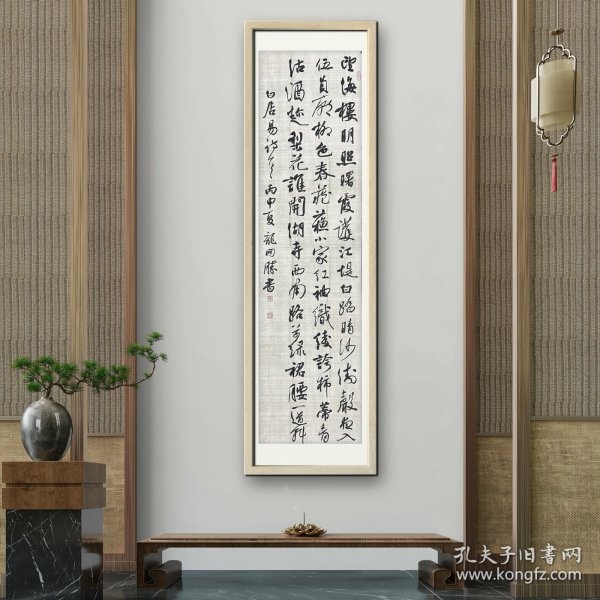 望海樓明照曙霞護江堤白踏晴沙濤聲夜入
伍員廟柳色春藏蘇小家紅袖織綾誇柿蒂青
沽酒趁梨花誰開湖寺西南路草綠裙腰一道斜
白居易詩 丙申夏 龍勝書
孔夫子旧书网
www.kongfz.com